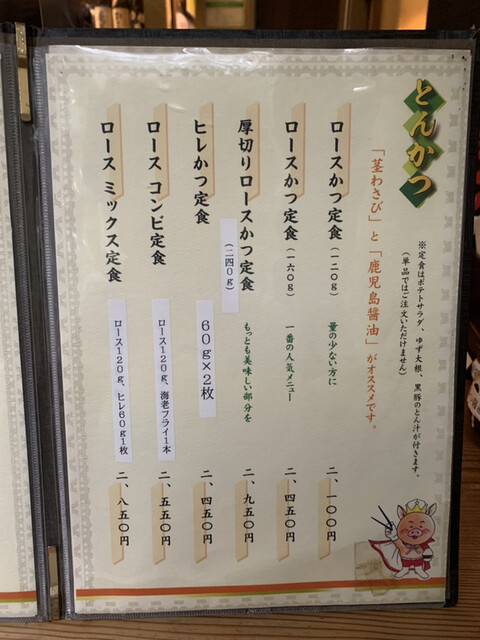 とんかつ
※定食はポテトサラダ、ゆず大根、黒豚のとん汁が付きます。
(単品ではご注文いただけません)
「茎わさび」と「鹿児島醤油」がオススメです。
ロースかつ定食(一二〇g) 量の少ない方に 二、一〇〇円
ロースかつ定食(一六〇g) 一番の人気メニュー 二、四五〇円
厚切りロースかつ定食(二四〇g) もっとも美味しい部分を 二、九五〇円
ヒレかつ定食 60g×2枚 二、四五〇円
ロース コンビ定食 ロース120g、海老フライ1本 二、五五〇円
ロース ミックス定食 ロース120g、ヒレ60g1枚 二、八五〇円